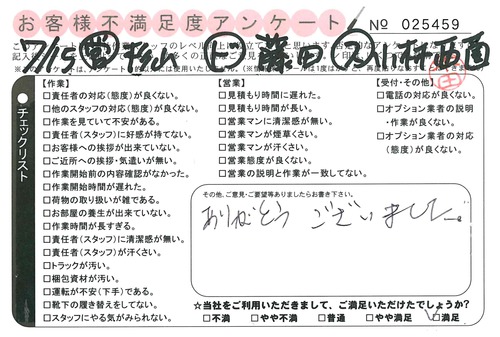 お客様不満足度アンケート
No 025459
7/15 杉山 ビ 藤田 ス 小林 西面
チェックリスト
【作業】
□責任者の対応(態度)が良くない。
□他のスタッフの対応(態度)が良くない。
□作業を見ていて不安がある。
□責任者(スタッフ)に好感が持てない。
□お客様への挨拶が出来ていない。
□ご近所への挨拶・気遣いが無い。
□作業開始前の内容確認がなかった。
□作業開始時間が遅れた。
□荷物の取り扱いが雑である。
□お部屋の養生が出来ていない。
□作業時間が長すぎる。
□責任者(スタッフ)に清潔感が無い。
□責任者(スタッフ)が汗くさい。
□トラックが汚い。
□梱包資材が汚い。
□運転が不安(下手)である。
□靴下の履き替えをしてない。
□スタッフにやる気がみられない。
【営業】
□見積もり時間に遅れた。
□見積もり時間が長い。
□営業マンに清潔感が無い。
□営業マンが煙草くさい。
□営業マンが汗くさい。
□営業態度が良くない。
□営業の説明と作業が一致してない。
【受付・その他】
□電話の対応が良くない。
□オプション業者の説明
・作業が良くない。
□オプション業者の対応
(態度)が良くない。
その他、ご意見・ご要望等ありましたらお書き下さい。
ありがとう ございました。
☆当社をご利用いただきまして、ご満足いただけたでしょうか?
□不満 □やや不満 □普通 □やや満足 □満足